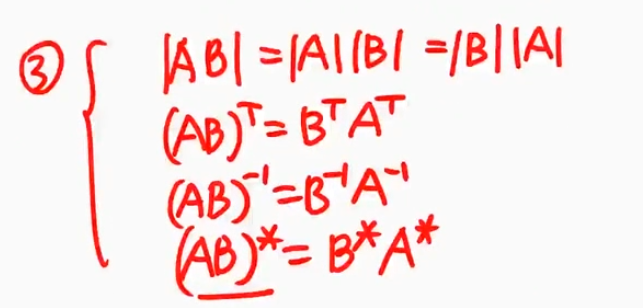 ③ |AB| = |A||B| = |B||A|
(AB)ᵀ = BᵀAᵀ
(AB)⁻¹ = B⁻¹A⁻¹
(AB)* = B*A*